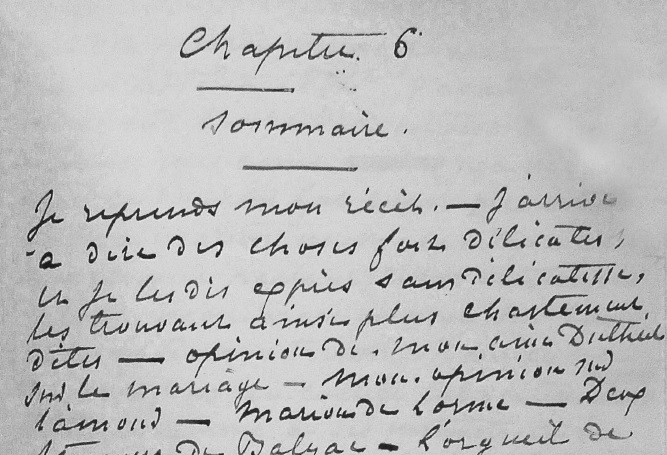 Chapitre 6
Sommaire.
Je reprends mon récit. — J'arrive
à dire des choses fort délicates,
et je les dis exprès sans délicatesse,
les trouvant ainsi plus chastement
dites — opinion de mon ami Dutheil
sur le mariage — mon opinion sur
l'amour — Marion de Lorme — Deux
femmes de Balzac — L'orgueil de